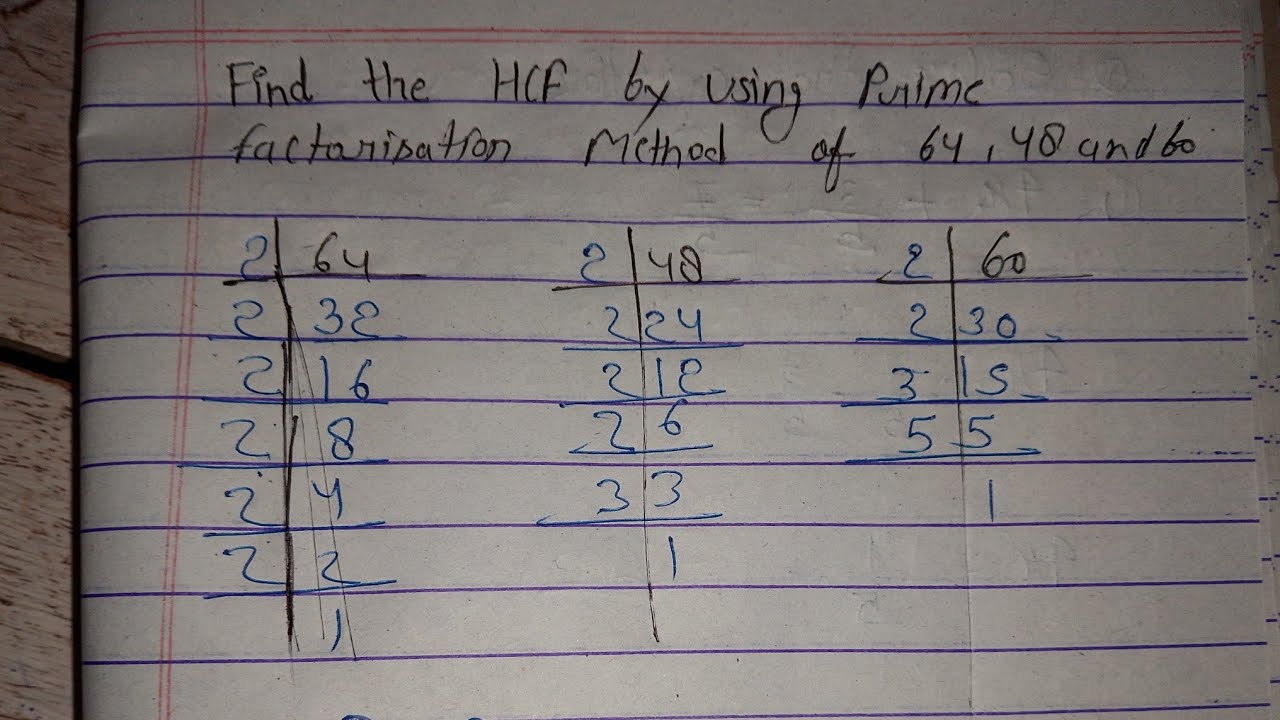 Find the HCF by using Prime
factorisation Method of 64, 48 and 60
2 64 2 48 2 60
2 32 2 24 2 30
2 16 2 12 3 15
2 8 2 6 5 5
2 4 3 3 1
2 2 1
1